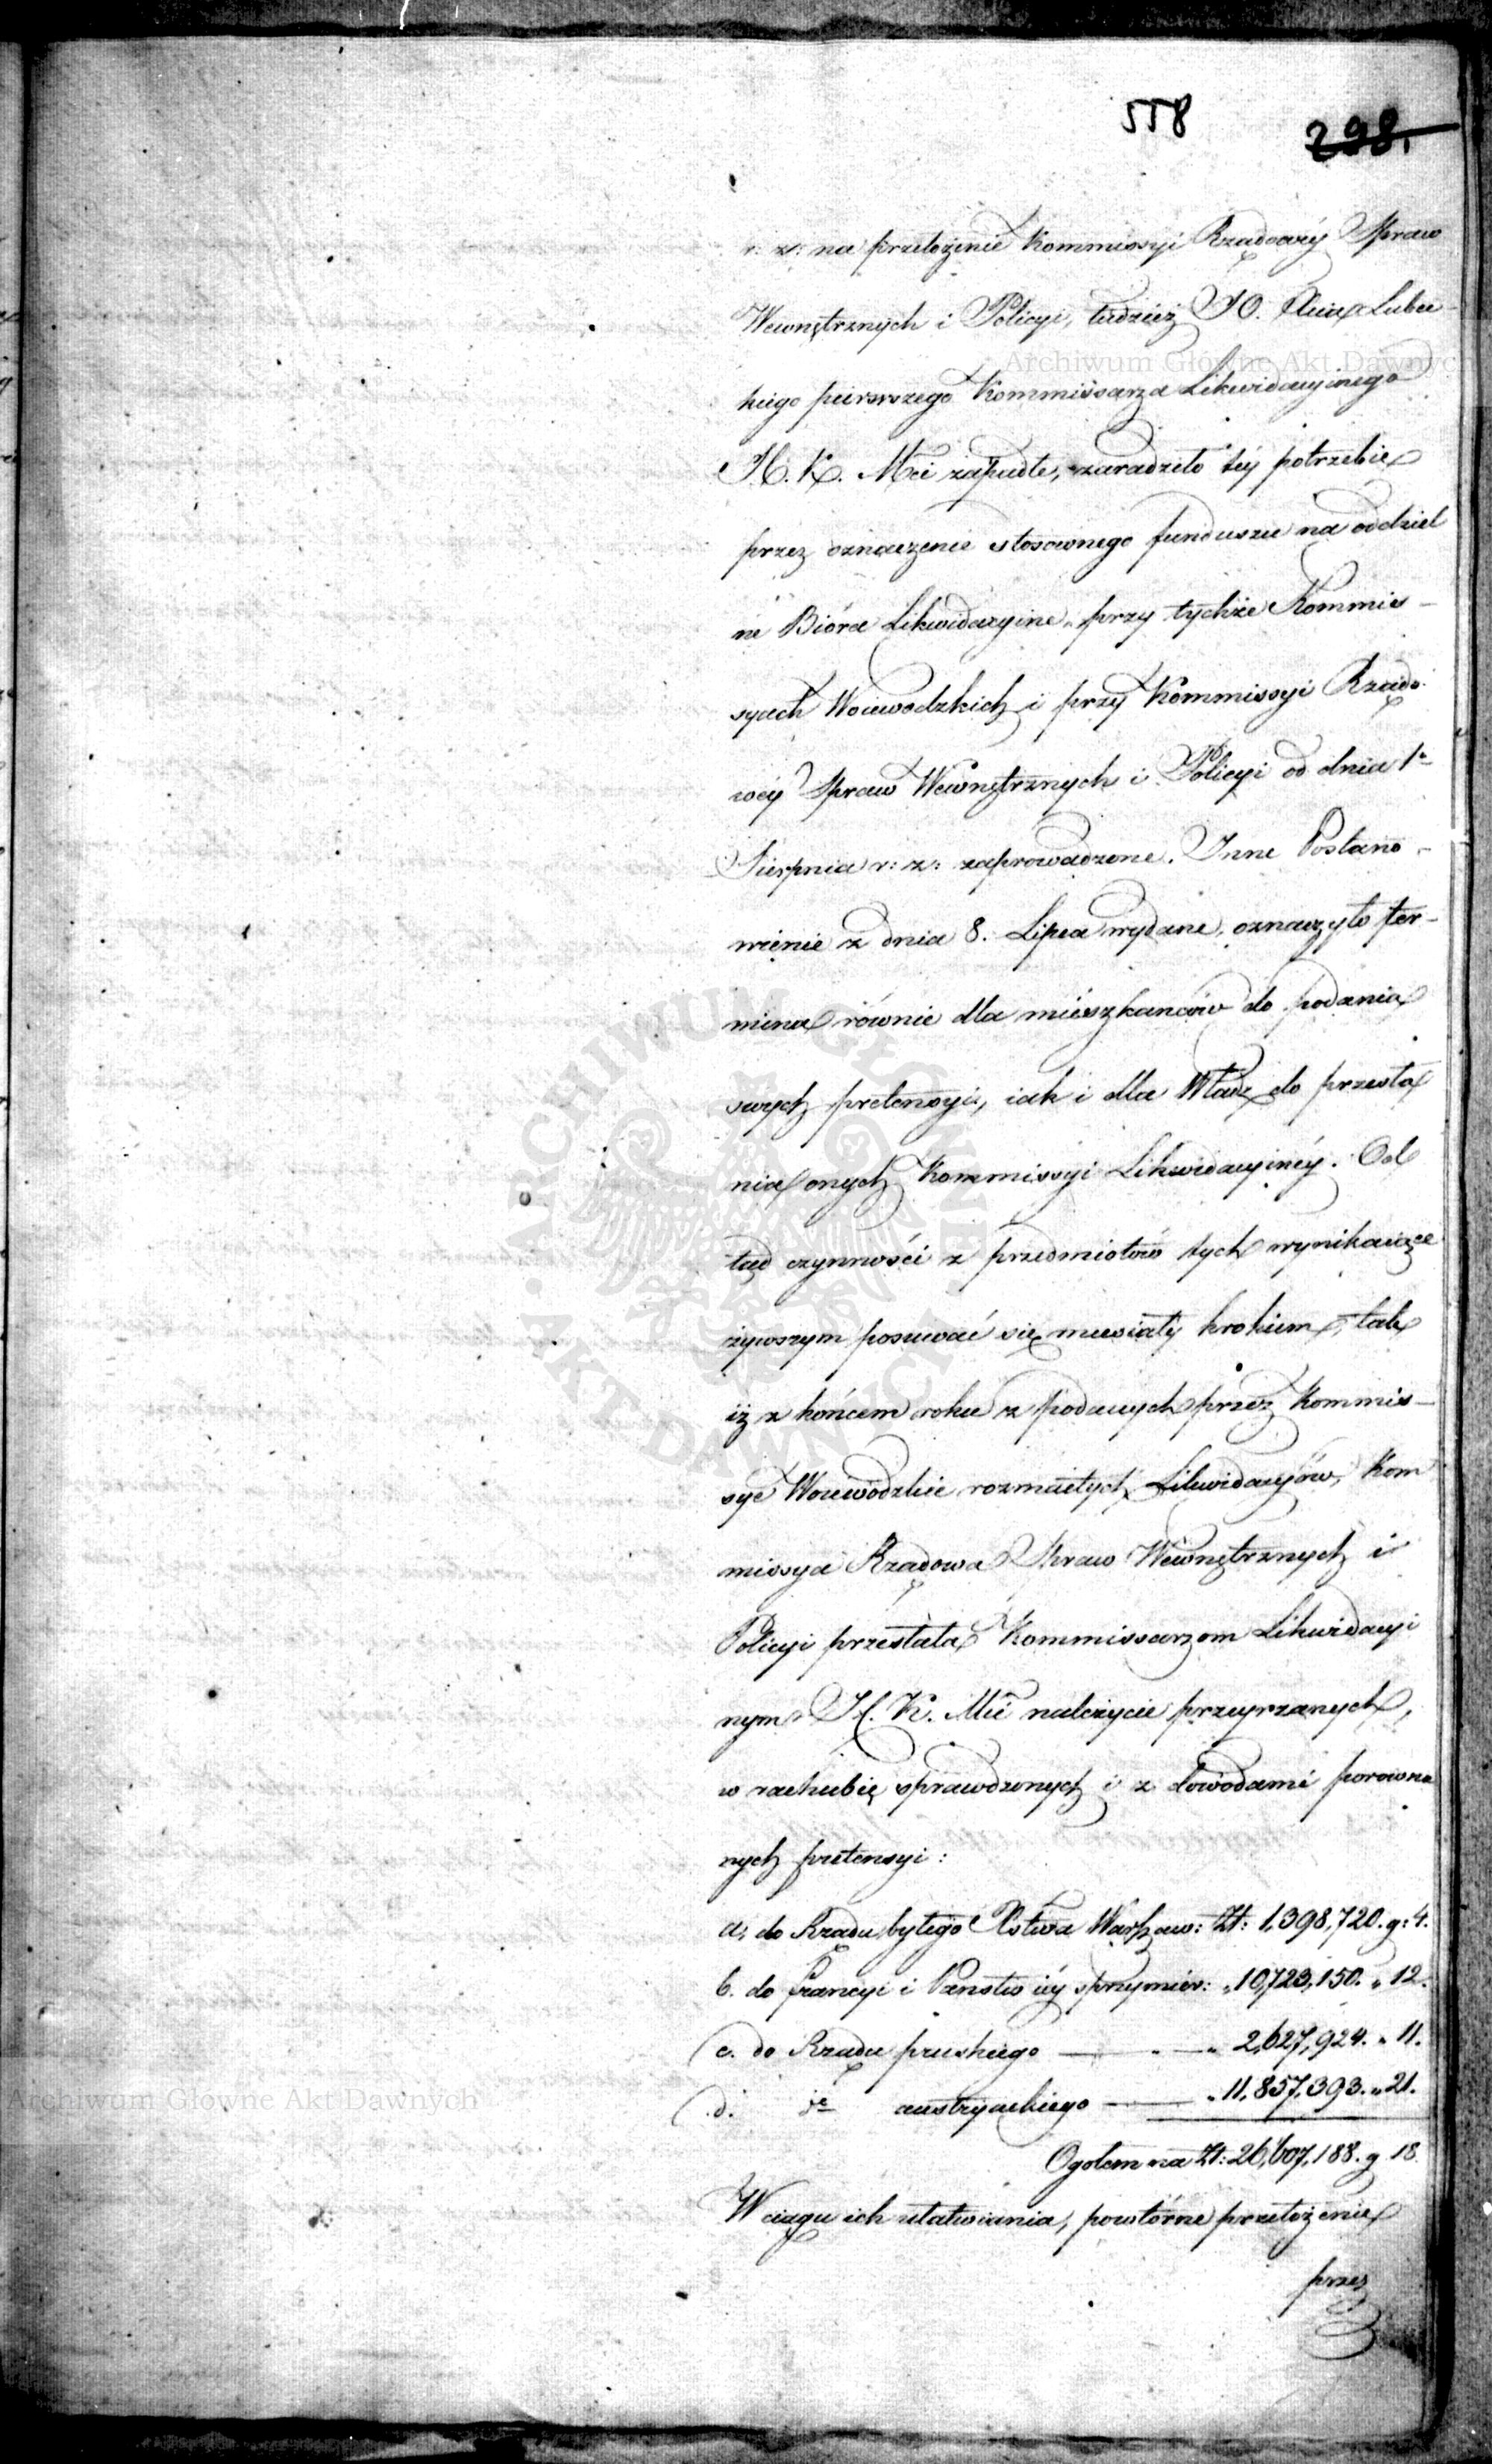 558 298.
r: z: na przełożenie Kommissyi Rządowéy Spraw
Wewnętrznych i Policyi, tudzież JO. Xcia Lubec-
kiego pierwszego Kommissarza Likwidacyinego
J. K. Mci zapadłe, zaradziło téy potrzebie
przez oznaczenie stosownego funduszu na oddziel
ne Bióra Likwidacyine przy tychże Kommis-
syach Woiewodzkich i przy Kommissyi Rządo-
wéy Spraw Wewnętrznych i Policyi od dnia 1o
Sierpnia r: z: zaprowadzone. Inne Postano-
wienie z dnia 8. Lipca wydane, oznaczyło ter-
mina równie dla mieszkańców do podania
swych pretensyi, iak i dla Władz do przesła
nia onych Kommissyi Likwidacyinéy. Od
tąd czynności z przedmiotów tych wynikaiące
żywszym posuwać się musiały krokiem, tak
iż z końcem roku z podanych przez Kommis-
sye Woiewódzkie rozmaitych Likwidacyów, Kom
missya Rządowa Spraw Wewnętrznych i
Policyi przesłała Kommissarzom Likwidacyi
nym J. K. Mci należycie przeyrzanych,
w rachubie sprawdzonych i z dowodami porowna
nych pretensyi:
a, do Rządu byłego Xstwa Warszaw: Zł: 1,398,720. g: 4.
b. do francyi i Państw iéy sprzymier: „ 10,723,150. „ 12.
c. do Rządu pruskiego — „ 2,627,924. „ 11.
d. do austryackiego — „ 11,857,393. „ 21.
Ogołem na Zł: 26,607,188. g 18.
W ciągu ich ułatwiania, powtórne przełożenie
przez
Archiwum Główne Akt Dawnych
Archiwum Główne Akt Dawnych
ARCHIWUM GŁÓWNE AKT DAWNYCH